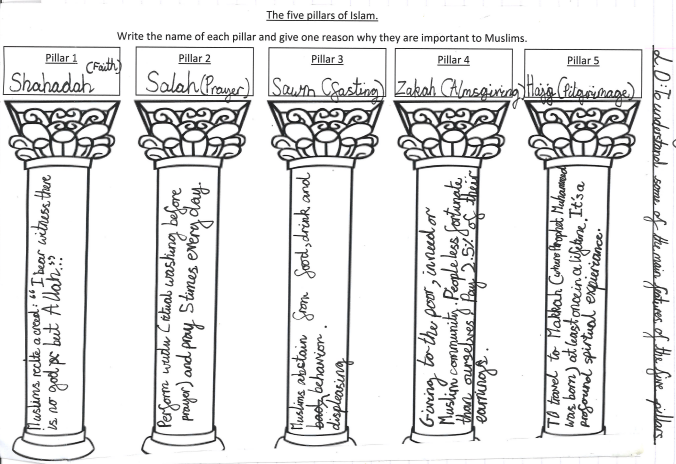 The five pillars of Islam.
Write the name of each pillar and give one reason why they are important to Muslims.
Pillar 1
Shahadah (Faith)
Pillar 2
Salah (Prayer)
Pillar 3
Sawm (fasting)
Pillar 4
Zakah (Almsgiving)
Pillar 5
Hajj (Pilgrimage)
Muslims recite a creed: "I bear witness there
is no god but Allah..."
Perform wudu (ritual washing before
prayer) and pray 5 times every day.
Muslims abstain from food, drink and
behaviour.
displeasing
Giving to the poor, in need or
Muslim community. People less fortunate
than ourselves. Pay 2.5% of their
earnings.
To travel to Makkah (where Prophet Muhammad
was born) at least once in a lifetime. It's a
profound spiritual experience.
L.O: To understand some of the main features of the five pillars